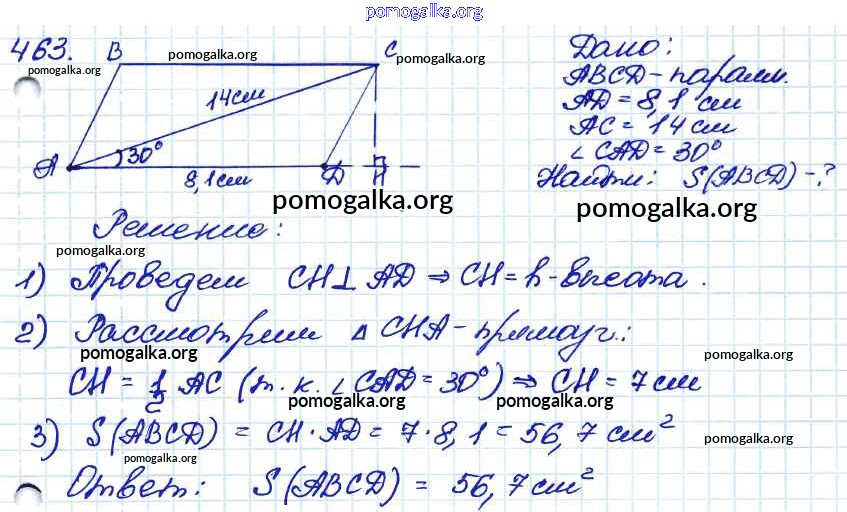 pomogalka.org
463.
B
pomogalka.org
C
pomogalka.org
pomogalka.org
14 см
A
30°
8,1 см
D
H
pomogalka.org
Дано:
ABCD - паралл.
AD = 8,1 см
AC = 14 см
∠CAD = 30°
Найти: S(ABCD) - ?
pomogalka.org
Решение:
pomogalka.org
1) Проведем CH⊥AD ⇒ CH = h - высота.
2) Рассмотрим △CHA - прямоуг.:
pomogalka.org
pomogalka.org
CH = 1/2 AC (т.к. ∠CAD = 30°) ⇒ CH = 7 см
pomogalka.org
pomogalka.org
3) S(ABCD) = CH·AD = 7·8,1 = 56,7 см²
pomogalka.org
pomogalka.org
Ответ: S(ABCD) = 56,7 см²